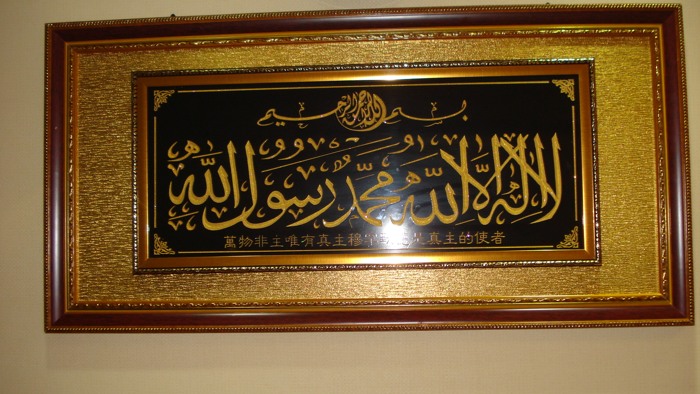 بسم الله الرحمن الرحيم
لا اله الا الله محمد رسول الله
萬物非主唯有真主穆真主的使者